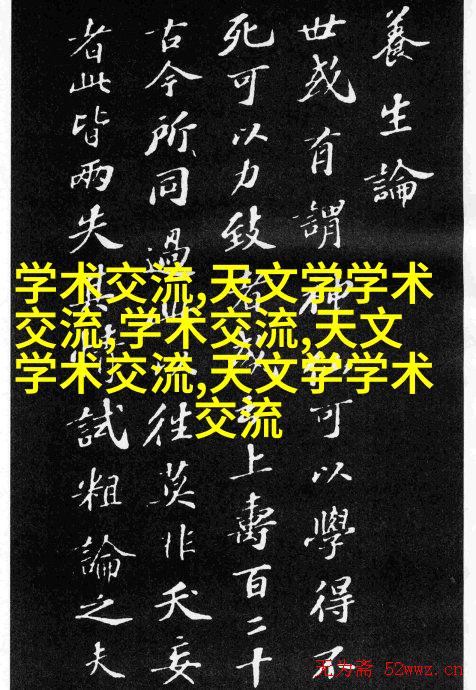 養生論
世或有謂神可以學得不
死可以力致者或上壽百二十
古今所同過此往莫非夭妄
者此皆兩失其試粗論之夫
学术交流,天文学学术
交流,学术交流,天文
学术交流,天文学学术
交流
无为斋 52wwz.cn